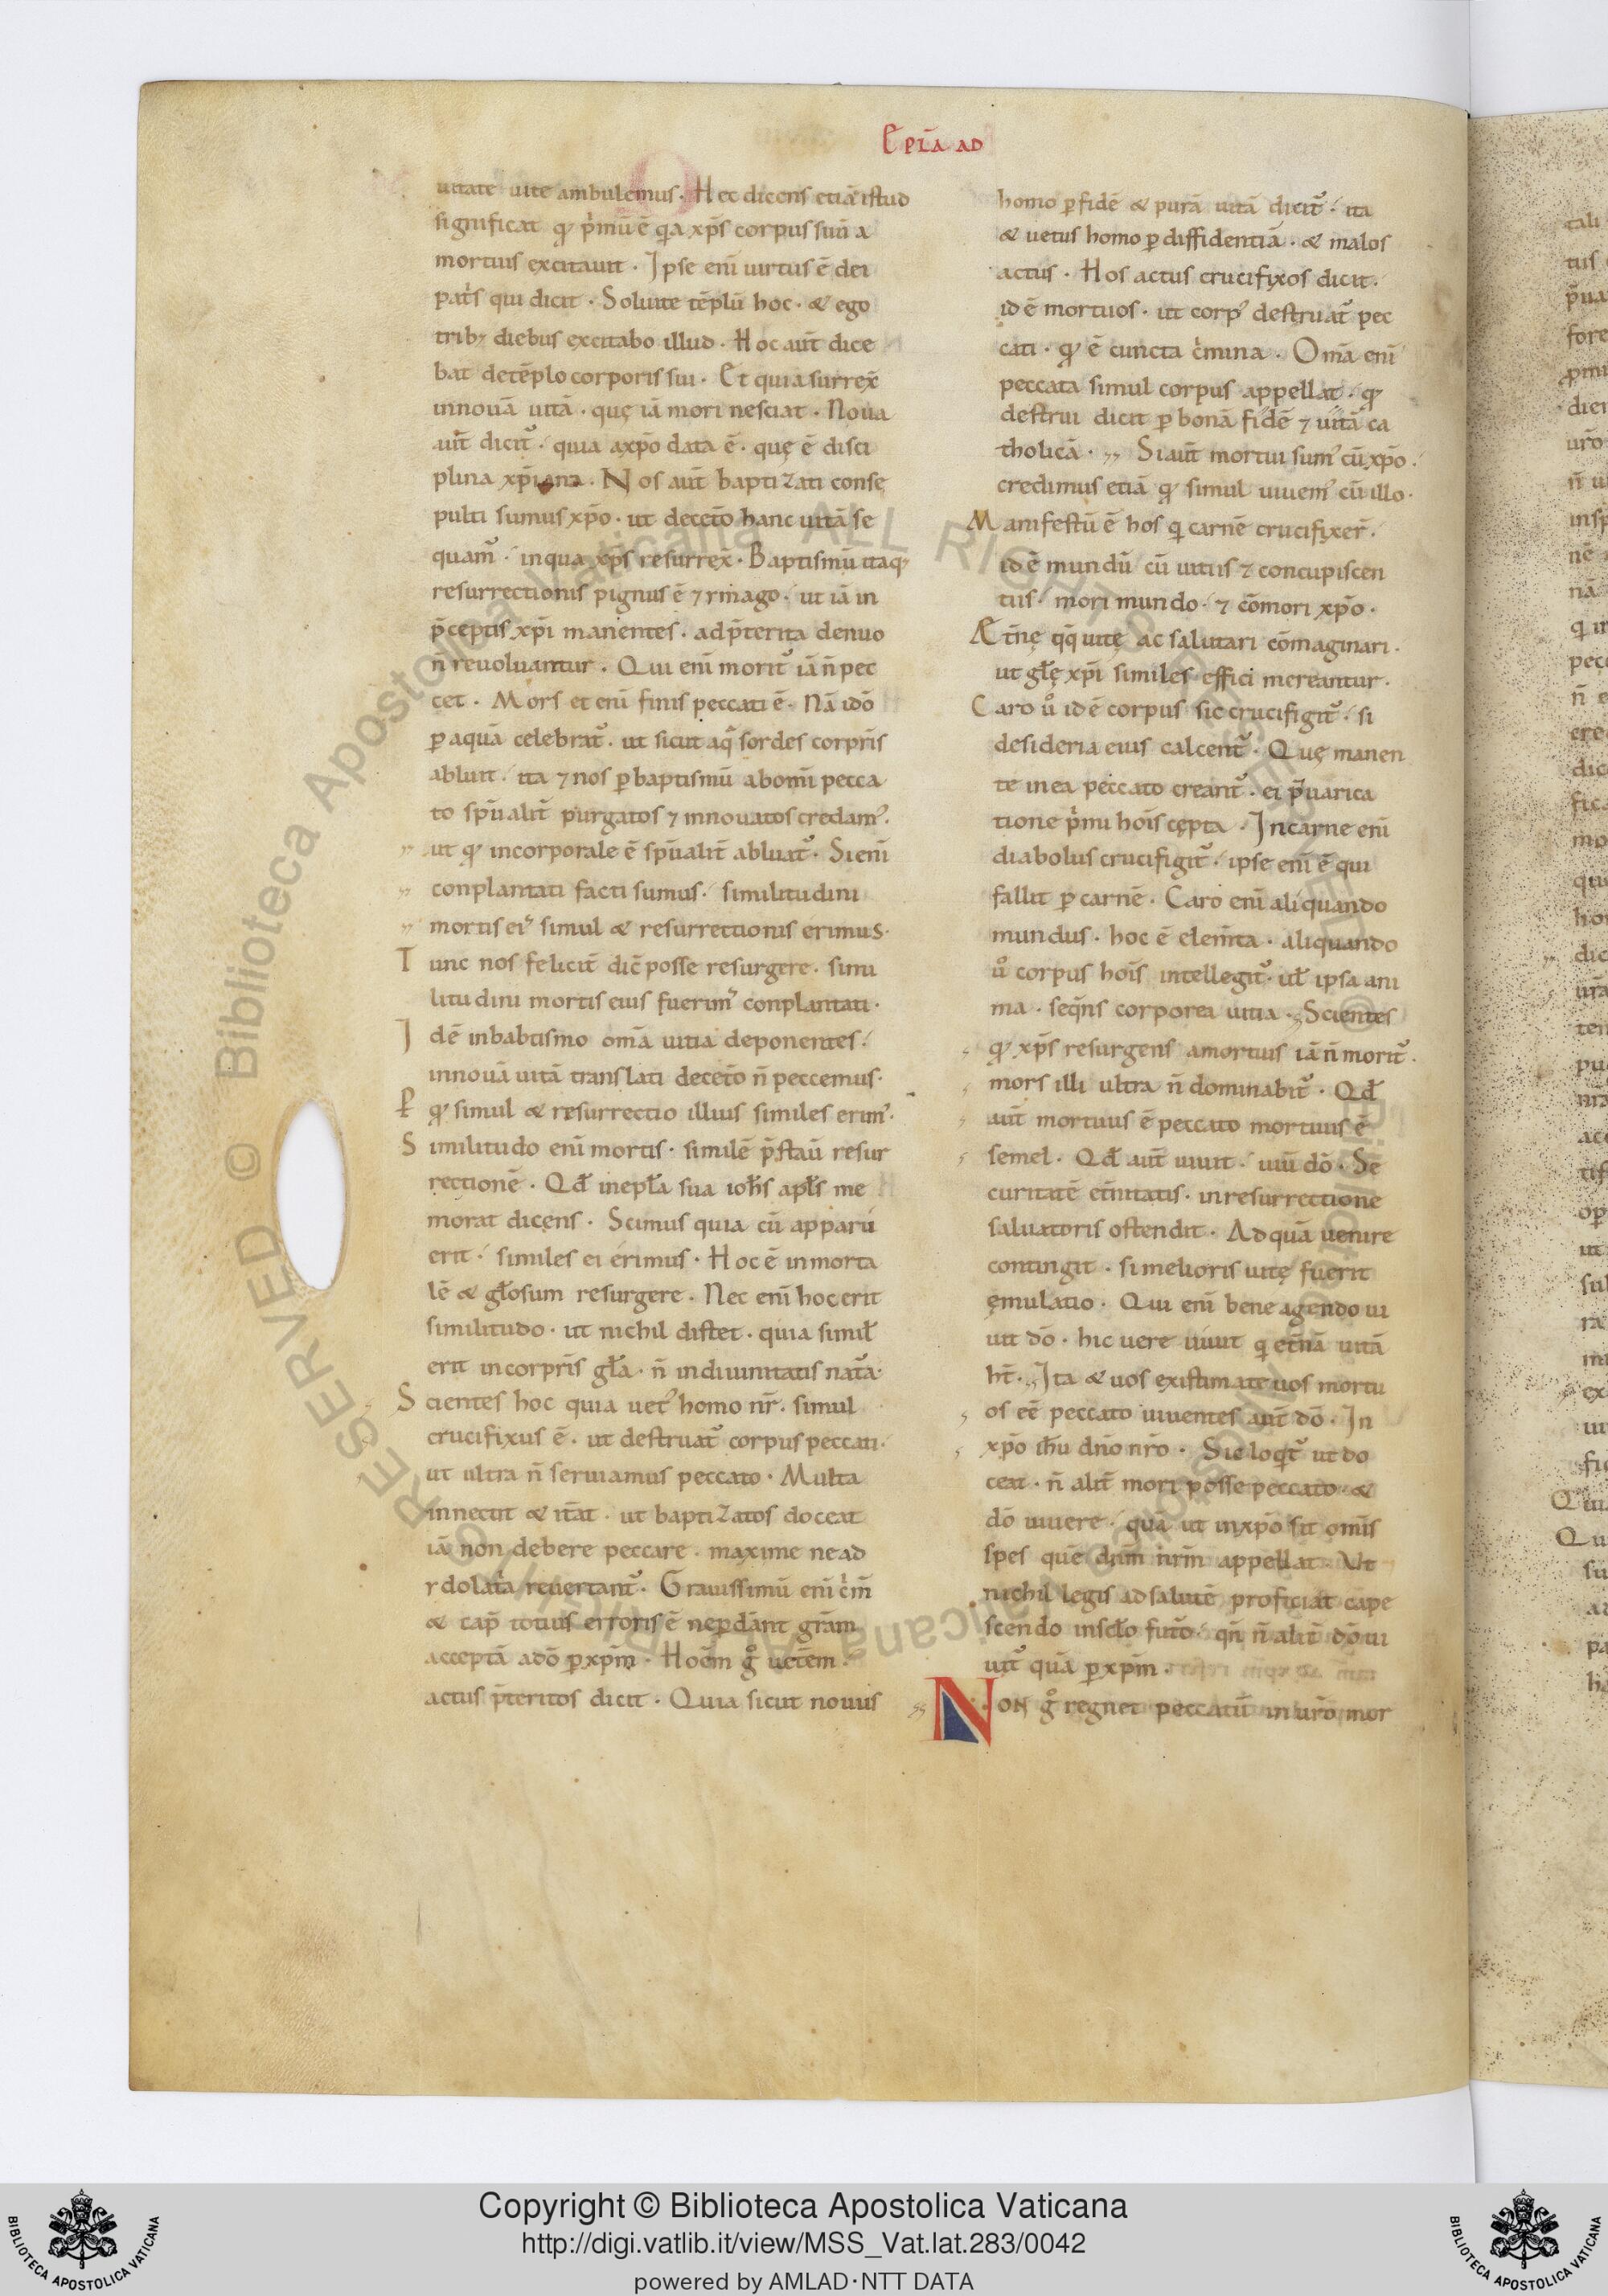 Epl̄a ad
uitate uite ambulemus. Hec dicens etiā istud
significat qđ p̄mū ē q̄a xp̄s corpus suū a
mortuis excitauit. Ipse enī uirtus ē dei
pat̄s qui dicit. Soluite tēplū hoc. & ego
trib; diebus excitabo illud. Hoc aūt dice
bat detēplo corporis sui. Et quia surrex̄
innouā uitā. quę iā mori nesciat. Noua
aūt dicit᷑. quia axp̄o data ē. quę ē disci
plina xp̄iana. Nos aūt baptizati conse
pulti sumus xp̄o. ut decet̄o hanc uitā se
quam᷑. inqua xp̄s resurrex̄. Baptismū itaq;
resurrectionis pignus ē ⁊ imago. ut iā in
p̄ceptis xp̄i manentes. adp̄terita denuo
n̄ reuoluantur. Qui enī morit᷑ iā n̄ pec
cet. Mors et enī finis peccati ē. Nā idō
ꝑ aquā celebrat᷑. ut sicut aq̄ sordes corp̄ris
abluit. ita ⁊ nos ꝑ baptismū abomī pecca
to sp̄ualit̄ purgatos ⁊ innouatos credam᷒.
ut qđ incorporale ē sp̄ualit̄ abluat᷑. Si enī
conplantati facti sumus. similitudini
mortis ei᷒ simul & resurrectionis erimus.
Tunc nos felicit̄ dic̄ posse resurgere. simi
litudini mortis eius fuerim᷒ conplantati.
Idē inbabtismo om̄a uitia deponentes.
innouā uitā translati decet̄o n̄ peccemus.
qđ simul & resurrectio illius similes erim᷒.
Similitudo enī mortis. similē p̄staū resur
rectionē. Qđ inepl̄a sua ioh̄s apl̄s me
morat dicens. Scimus quia cū apparu
erit. similes ei erimus. Hoc ē inmorta
lē & gl̄osum resurgere. Nec enī hoc erit
similitudo. ut nichil distet. quia simil̄
erit incorp̄ris gl̄a. n̄ indiuinitatis nat̄a.
Scientes hoc quia uet᷒ homo nr̄. simul
crucifixus ē. ut destruat᷑ corpus peccati.
ut ultra n̄ seruiamus peccato. Multa
innectit & it̄at. ut baptizatos doceat
iā non debere peccare. maxime ne ad
idolat̄a reuertant᷑. Grauissimū enī c̄m̄
& cap̄ totius erroris ē neꝑdānt grām
acceptā adō ꝑxp̄m. Hoēm g̊ uetēm.
actus p̄teritos dicit. Quia sicut nouus
homo ꝑ fidē & purā uitā dicit᷑. ita
& uetus homo ꝑ diffidentiā. & malos
actus. Hos actus crucifixos dicit.
id ē mortuos. ut corp᷒ destruat᷑ pec
cati. qđ ē cuncta c̄mina. Om̄a enī
peccata simul corpus appellat. qđ
destrui dicit ꝑ bonā fidē ⁊ uitā ca
tholicā. Si aūt mortui sum᷒ cū xp̄o.
credimus etiā qđ simul uiuem᷒ cū illo.
Manifestū ē hos qi carnē crucifixer̄.
id ē mundū cū uitiis ⁊ concupiscen
tiis. mori mundo. ⁊ cōmori xp̄o.
Æt̄nę qq̄ uitę ac salutari cōmaginari.
ut gl̄ę xp̄i similes effici mereantur.
Caro ů id ē corpus sic crucifigit᷑. si
desideria eius calcent᷑. Quę manen
te in ea peccato creant᷑. ei p̄uarica
tione p̄mi hoīs cępta. In carne enī
diabolus crucifigit᷑. ipse enī ē qui
fallit ꝑ carnē. Caro enī aliquando
mundus. hoc ē elem̄ta. aliquando
ů corpus hoīs intellegit᷑. ul̄ ipsa ani
ma. seq̄ns corporea uitia. Scientes
qđ xp̄s resurgens amortuis iā n̄ morit᷑.
mors illi ultra n̄ dominabit᷑. Qđ
aūt mortuus ē peccato mortuus ē
semel. Qđ aūt uiuit. uiū dō. Se
curitatē et̄nitatis. inresurrectione
saluatoris ostendit. Ad quā uenire
contingit. si melioris uitę fuerit
ęmulatio. Qui enī bene agendo ui
uit dō. hic uere uiuit qi et̄nā uitā
ht̄. Ita & uos existimate uos mortu
os eē peccato uiuentes aūt dō. In
xp̄o ih̄u dn̄o nr̄o. Sic loqt᷑ ut do
ceat. n̄ alit̄ mori posse peccato. &
dō uiuere. quā ut inxp̄o sit om̄is
spes quē dn̄m nr̄m appellat. Ut
nichil legis ad salutē proficiat cape
scendo inscl̄o fut̄o. qn̄ n̄ alit̄ dō ui
uit᷑ quā ꝑ xp̄m.
Non g̊ regnet peccatū in ur̄o mor
Copyright © Biblioteca Apostolica Vaticana
http://digi.vatlib.it/view/MSS_Vat.lat.283/0042
powered by AMLAD·NTT DATA
BIBLIOTECA APOSTOLICA VATICANA
BIBLIOTECA APOSTOLICA VATICANA